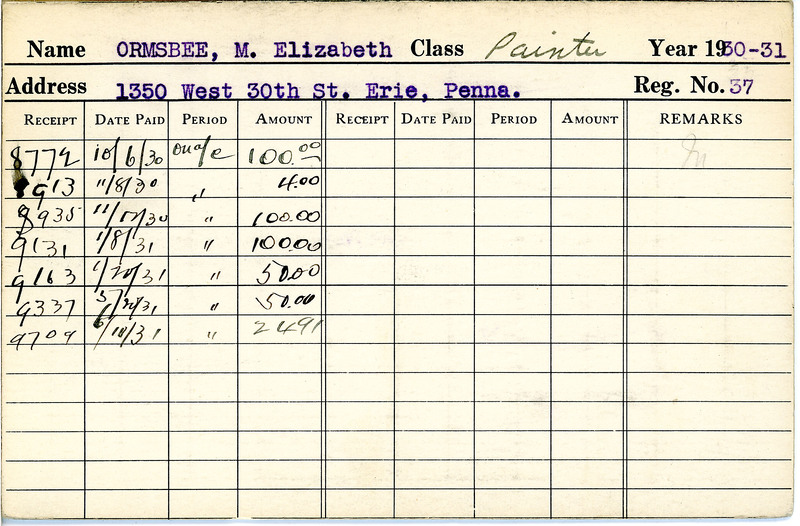 Name ORMSBEE, M. Elizabeth Class Painter Year 1930-31
Address 1350 West 30th St. Erie, Penna. Reg. No. 37
RECEIPT DATE PAID PERIOD AMOUNT RECEIPT DATE PAID PERIOD AMOUNT REMARKS
8772 10/6/30 on a/c 100.00
8913 11/8/30 " 4.00
8935 11/12/30 " 100.00
9131 1/8/31 " 100.00
9163 1/20/31 " 50.00
9337 " 50.00
9709 6/10/31 " 24 91